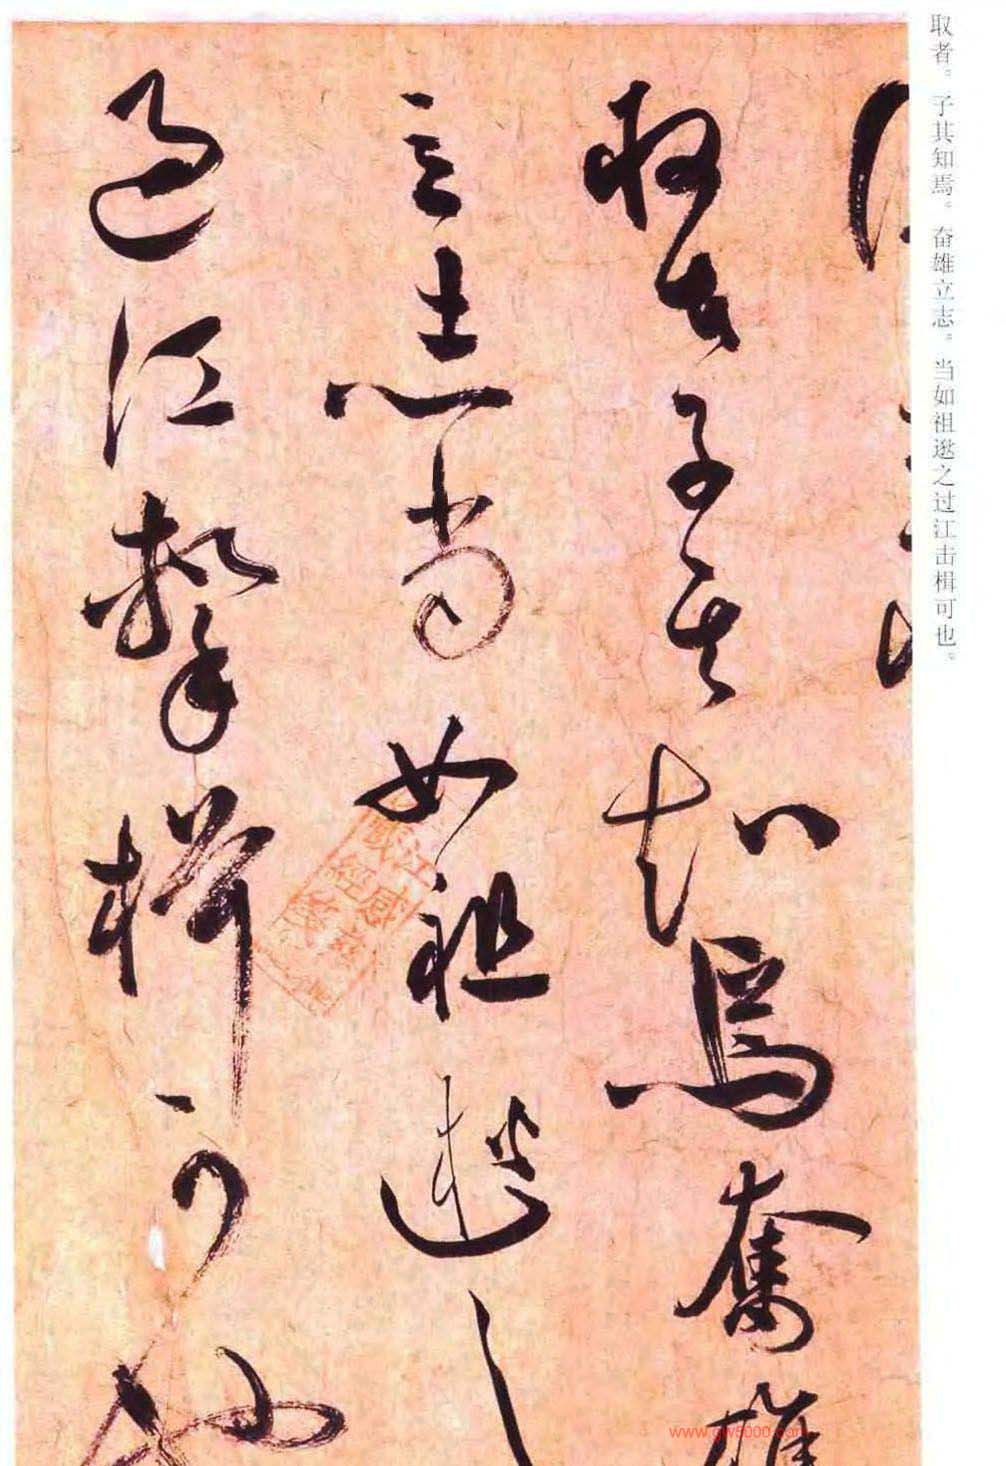 取者。子其知焉。奋雄立志。当如祖逖之过江击楫可也。
取者子其知焉奮雄
立志当如祖逖之
過江擊楫可也
www.gw5000.com